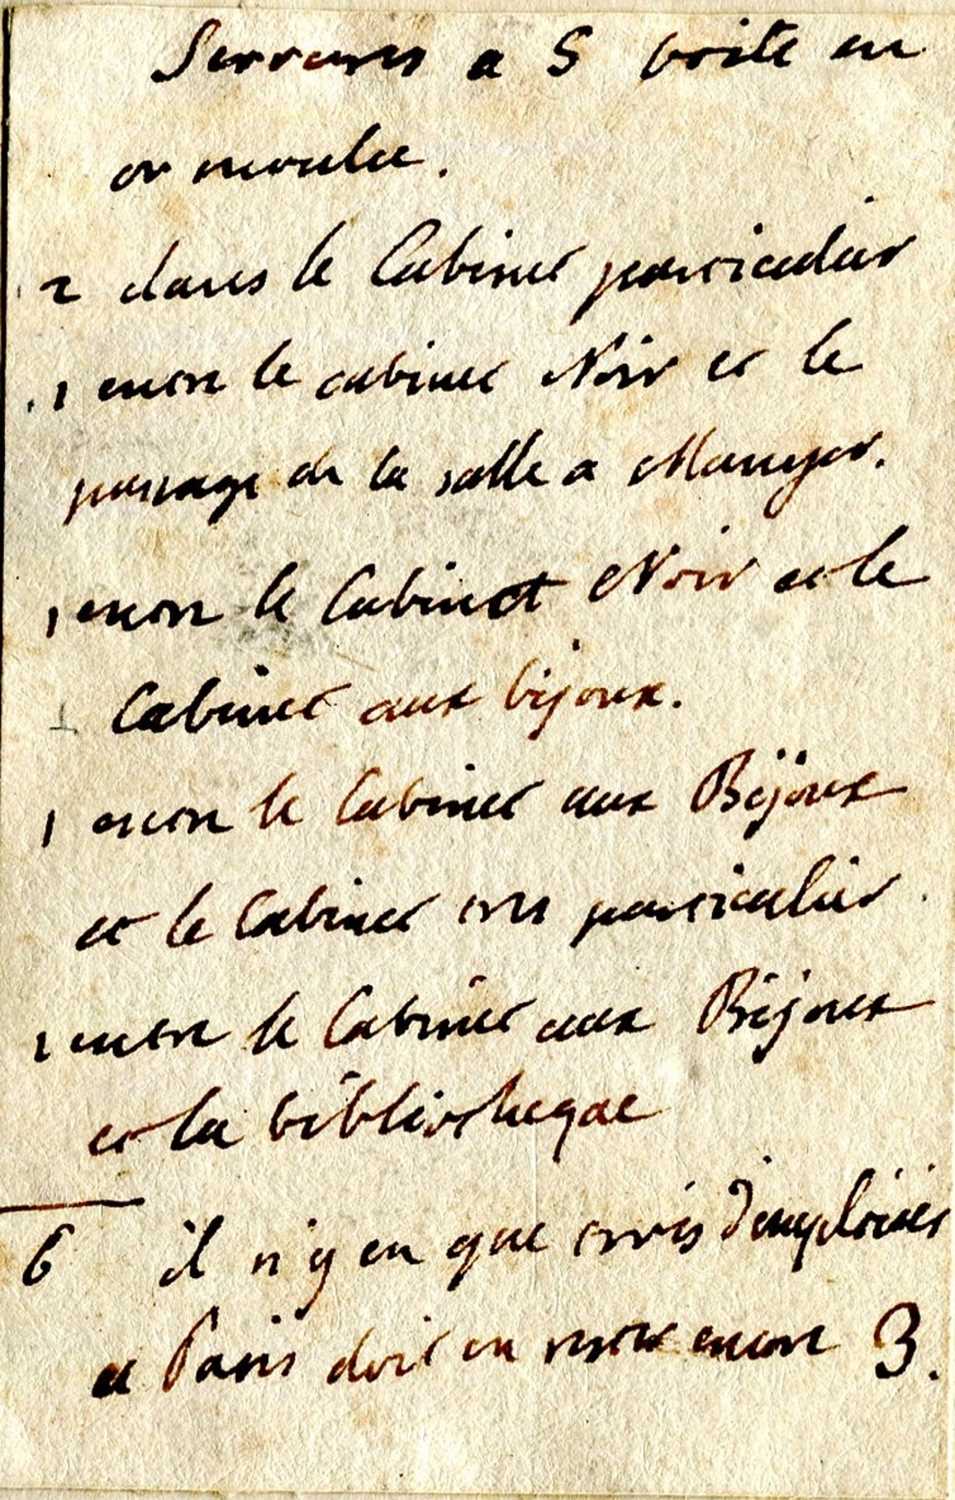 Serrures a S boite en
or moulu.
2 dans le Cabinet particulier
1 entre le cabinet Noir et le
passage de la salle a Manger.
1 entre le Cabinet Noir et le
Cabinet aux bijoux.
1 entre le Cabinet aux Bijoux
et le Cabinet tres particulier
1 entre le Cabinet aux Bijoux
et la bibliotheque
6 il n'y en que trois d'emploiés
et Paris doit en rester encore 3.